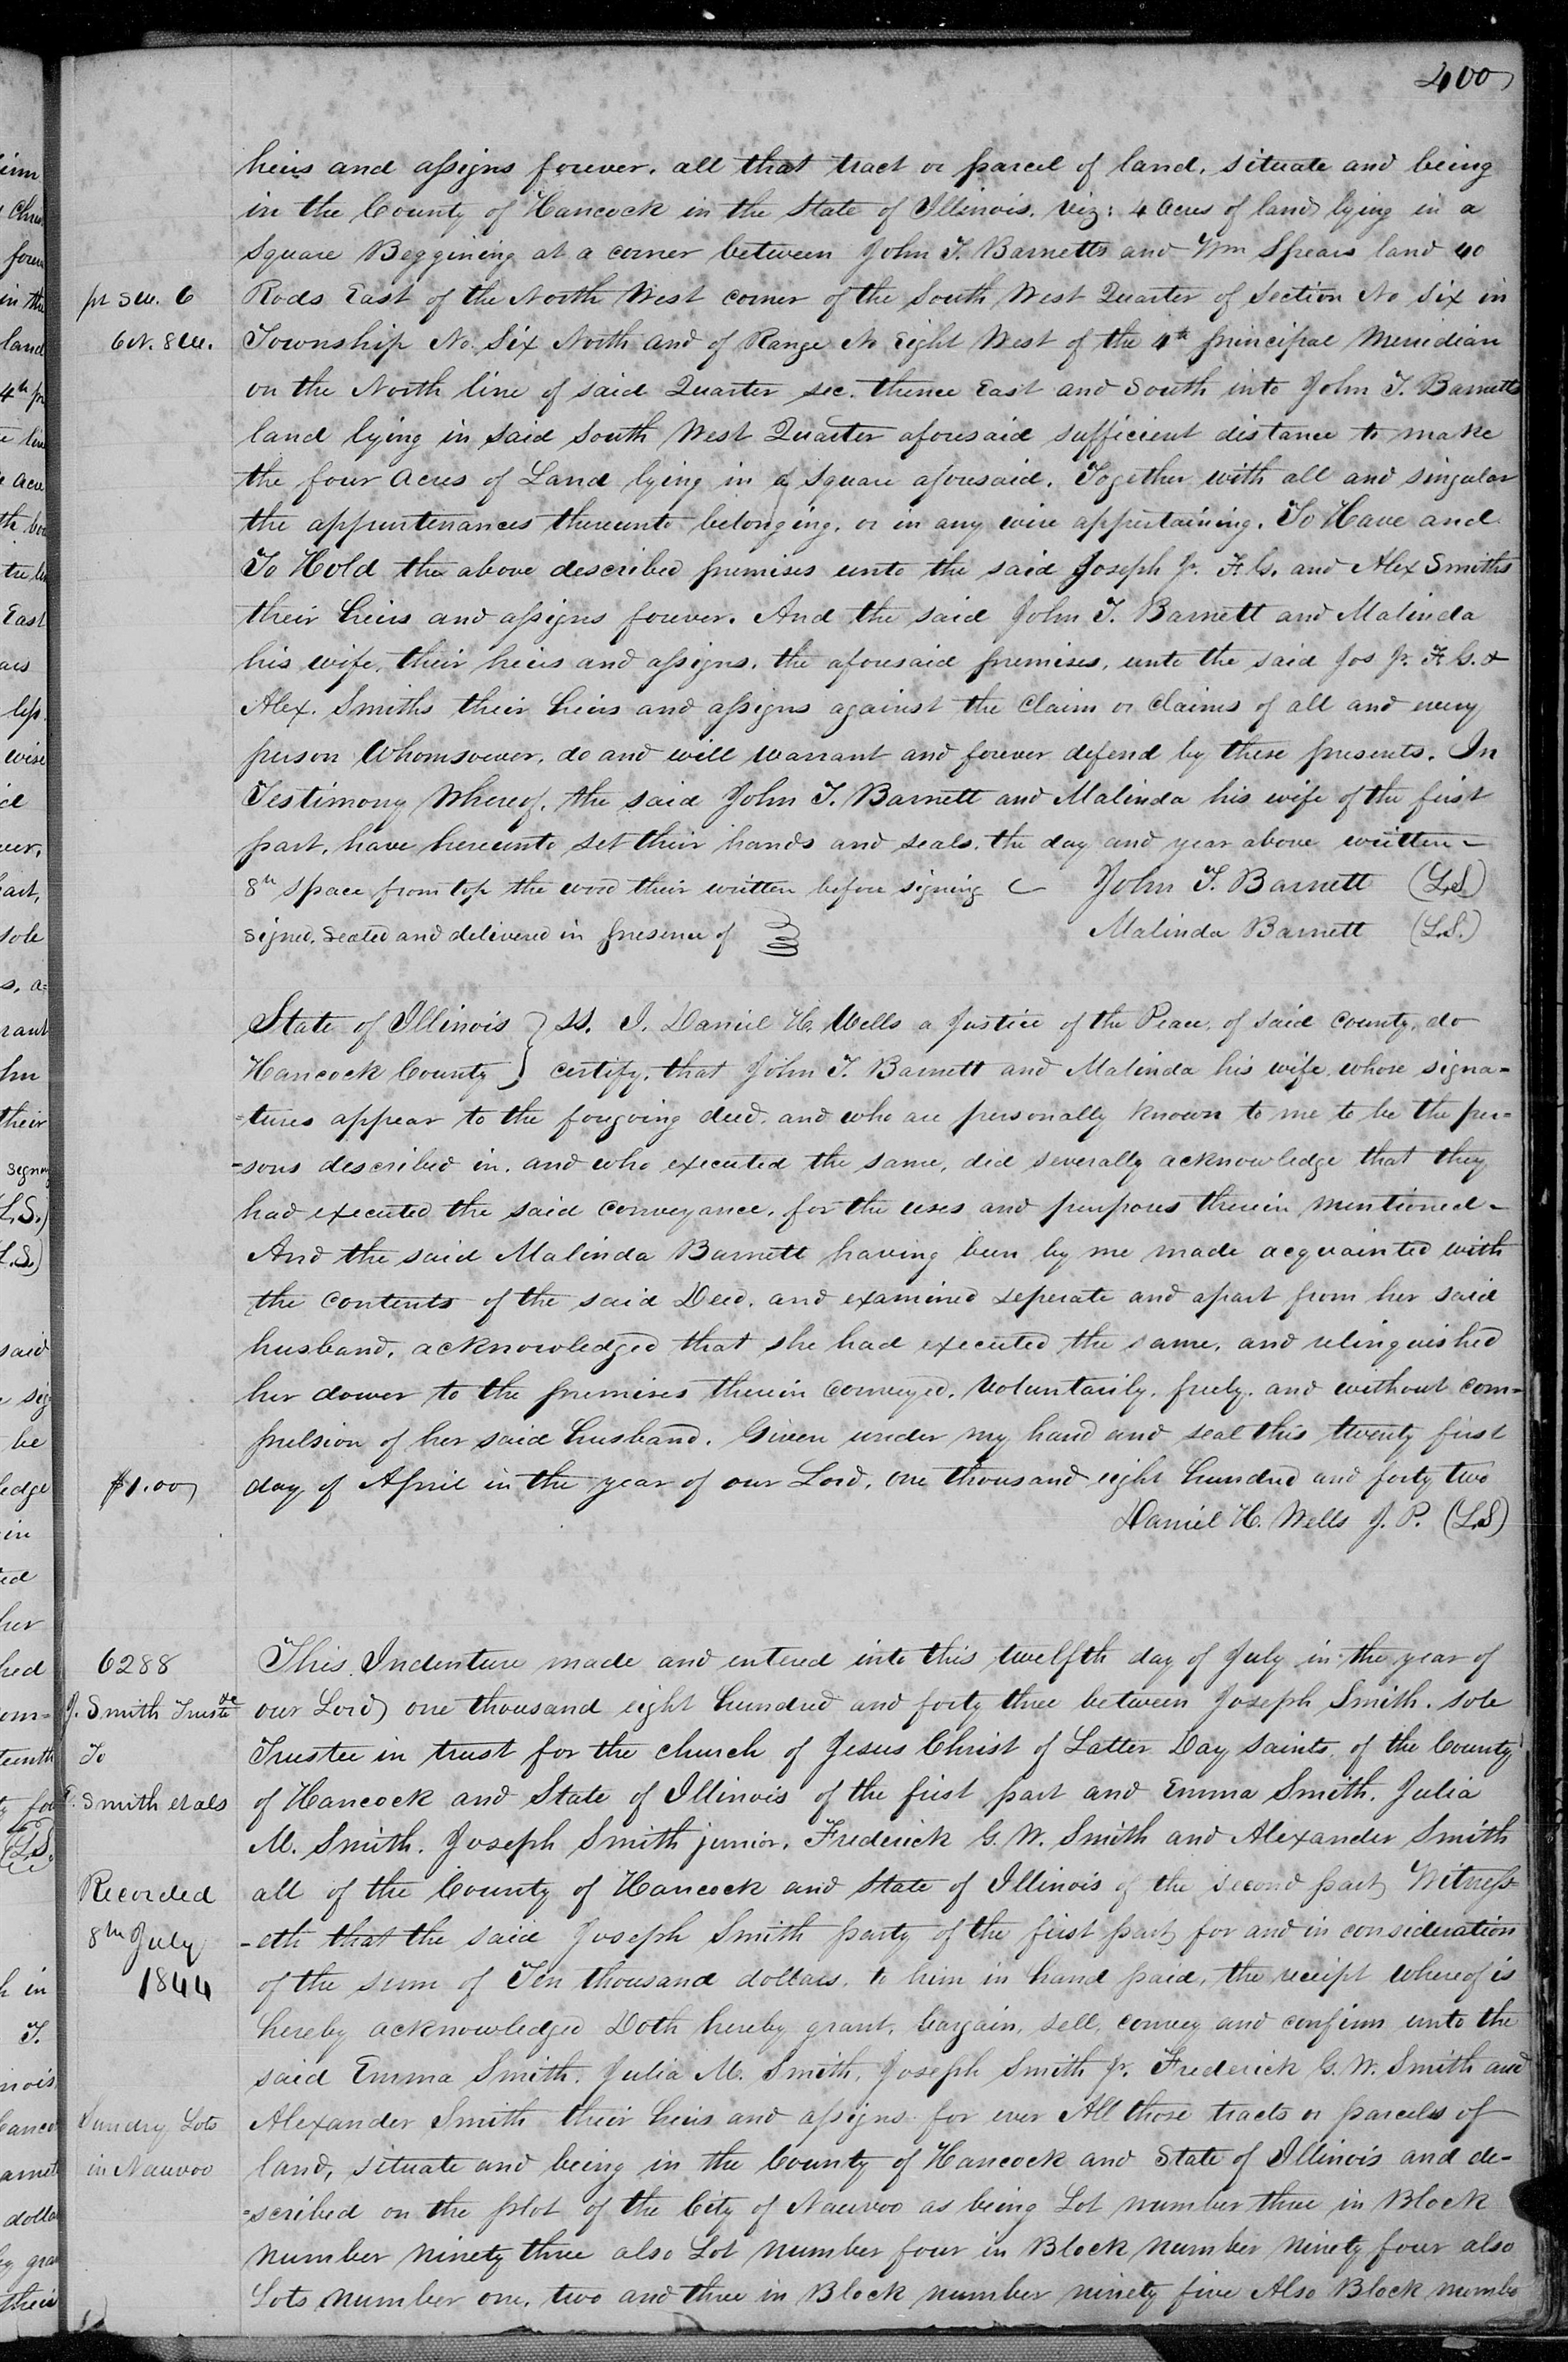 400
heirs and assigns forever. all that tract or parcel of land, situate and being
in the County of Hancock in the State of Illinois. Viz: 4 Acres of land lying in a
Square Beggining at a corner between John T. Barnetts and Wm Spears land 40
pt S.W. 6 Rods East of the North West corner of the South West Quarter of Section No Six in
6N. 8W. Township No. Six North and of Range No Eight West of the 4th principal Meridian
on the North line of said Quarter sec. thence East and South into John T. Barnetts
land lying in said South West Quarter aforesaid sufficient distance to make
the four Acres of Land lying in a Square aforesaid. Together with all and singular
the appurtenances thereunto belonging, or in any wise appertaining. To Have and
To Hold the above described premises unto the said Joseph Jr. F.G. and Alex Smiths
their heirs and assigns forever. And the said John T. Barnett and Malinda
his wife, their heirs and assigns, the aforesaid premises, unto the said Jos Jr. F.G. &
Alex. Smiths their heirs and assigns against the Claim or Claims of all and every
person Whomsoever, do and will warrant and forever defend by these presents. In
Testimony Whereof, the said John T. Barnett and Malinda his wife of the first
part, have hereunto set their hands and seals, the day and year above written -
8th space from top the word their written before signing John T. Barnett (L.S)
signed, sealed and delivered in presence of Malinda Barnett (L.S.)
State of Illinois } ss. I, Daniel H. Wells a Justice of the Peace, of said County, do
Hancock County } certify, that John T. Barnett and Malinda his wife, whose signa=
=tures appear to the foregoing deed, and who are personally known to me to be the per=
=sons described in, and who executed the same, did severally acknowledge that they
had executed the said conveyance, for the uses and purposes therein mentioned -
And the said Malinda Barnett having been by me made acquainted with
the contents of the said Deed, and examined seperate and apart from her said
husband, acknowledged that she had executed the same, and relinquished
her dower to the premises therein conveyed, Voluntarily, freely, and without com=
pulsion of her said husband. Given under my hand and seal this twenty first
$1.00 day of April in the year of our Lord, one thousand eight hundred and forty two
Daniel H. Wells J. P. (L.S)
6288 This Indenture made and entered into this twelfth day of July in the year of
J. Smith Trustee our Lord one thousand eight hundred and forty three between Joseph Smith, sole
To Trustee in trust for the church of Jesus Christ of Latter Day saints, of the County
E. Smith et als of Hancock and State of Illinois of the first part and Emma Smith, Julia
M. Smith, Joseph Smith junior, Frederick G. W. Smith and Alexander Smith
Recorded all of the County of Hancock and State of Illinois of the second part, Witness=
8th July -eth that the said Joseph Smith party of the first part, for and in consideration
1844 of the sum of Ten thousand dollars, to him in hand paid, the receipt whereof is
hereby acknowledged Doth hereby grant, bargain, sell, convey and confirm unto the
said Emma Smith, Julia M. Smith, Joseph Smith Jr. Frederick G. W. Smith and
Sundry Lots Alexander Smith their heirs and assigns for ever All those tracts or parcels of
in Nauvoo land, situate and being in the County of Hancock and State of Illinois and de=
=scribed on the plot of the City of Nauvoo as being Lot number three in Block
number ninety three also Lot number four in Block number ninety four also
Lots number one, two and three in Block number ninety five Also Block number